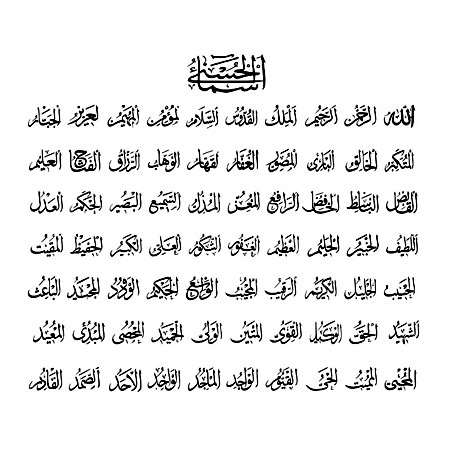 أسماء الحسنى
الله الرحمن الرحيم الملك القدوس السلام المؤمن المهيمن العزيز الجبار
المتكبر الخالق البارئ المصور الغفار القهار الوهاب الرزاق الفتاح العليم
القابض الباسط الخافض الرافع المعز المذل السميع البصير الحكم العدل
اللطيف الخبير الحليم العظيم الغفور الشكور العلي الكبير الحفيظ المقيت
الحسيب الجليل الكريم الرقيب المجيب الواسع الحكيم الودود المجيد الباعث
الشهيد الحق الوكيل القوي المتين الولي الحميد المحصي المبدئ المعيد
المحيي المميت الحي القيوم الواجد الماجد الواحد الأحد الصمد القادر